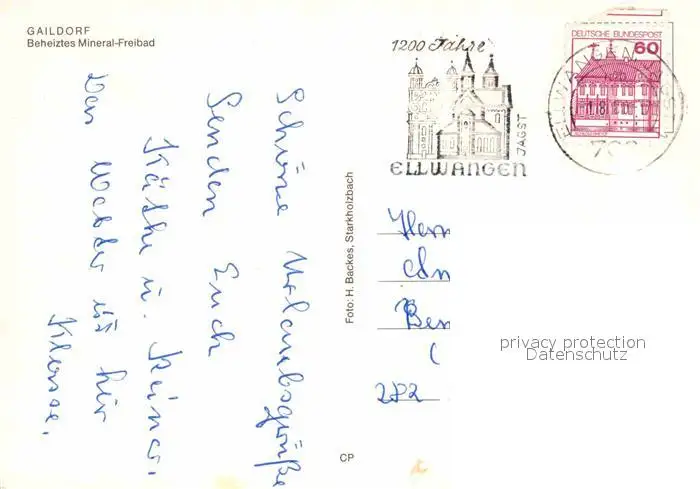 GAILDORF
Beheiztes Mineral-Freibad
Schöne Urlaubsgrüße
Senden Euch
Käthe u. Reiner.
Das Wetter ist hir
Klasse.
Foto: H. Backes, Starkholzbach
CP
1200 Jahre
ELLWANGEN
JAGST
DEUTSCHE BUNDESPOST
60
ELLWANGEN
Herrn
Ben
(
282
privacy protection
Datenschutz